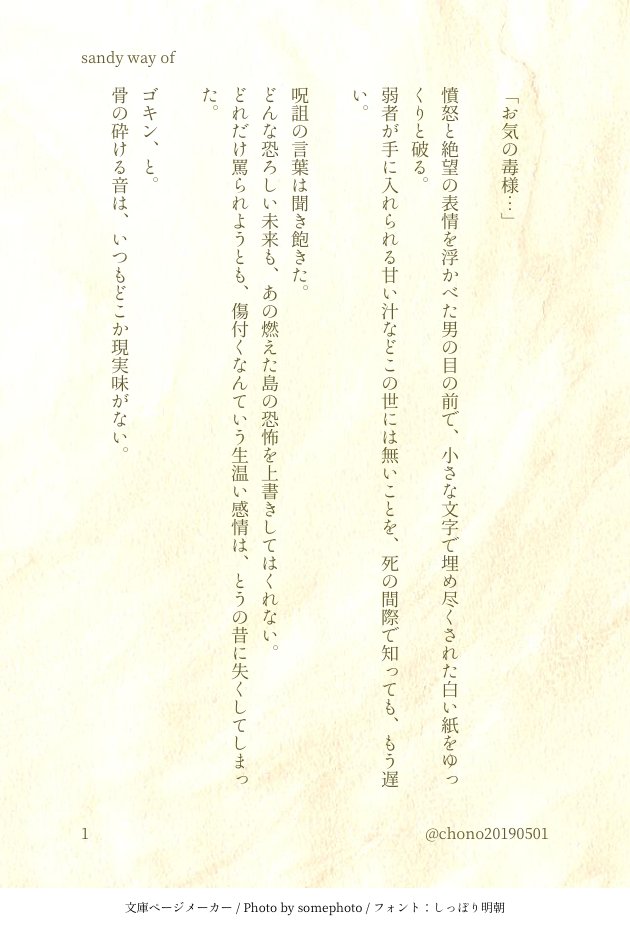 sandy way of
「お気の毒様…」
憤怒と絶望の表情を浮かべた男の目の前で、小さな文字で埋め尽くされた白い紙をゆっ
くりと破る。
弱者が手に入れられる甘い汁などこの世には無いことを、死の間際で知っても、もう遅
い。
呪詛の言葉は聞き飽きた。
どんな恐ろしい未来も、あの燃えた島の恐怖を上書きしてはくれない。
どれだけ罵られようとも、傷付くなんていう生温い感情は、とうの昔に失くしてしまっ
た。
ゴキン、と。
骨の砕ける音は、いつもどこか現実味がない。
1
@chono20190501
文庫ページメーカー / Photo by somephoto / フォント：しっぽり明朝